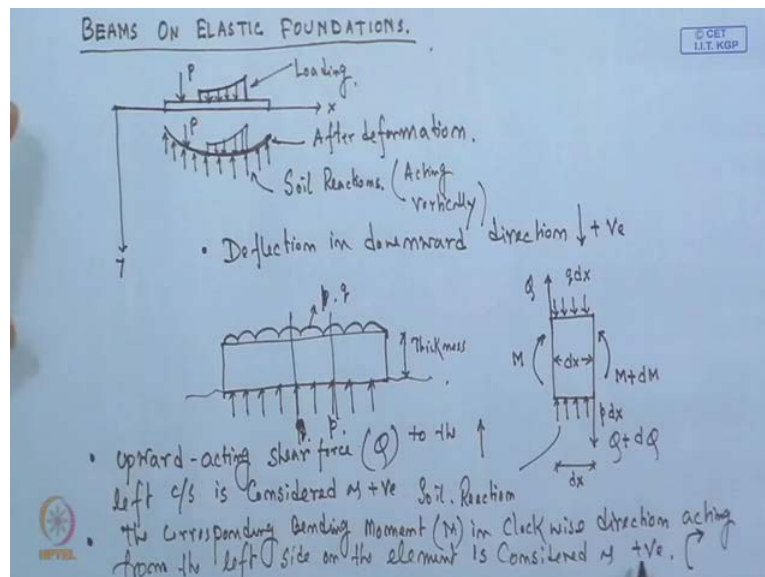 BEAMS ON ELASTIC FOUNDATIONS.
© CET
I.I.T. KGP
P
Loading.
x
P
After deformation.
Soil Reactions. (Acting
vertically)
• Deflection in downward direction ↓ +ve
y
q
Thickness
p.
Q
qdx
M
dx
M+dM
pdx
Q+dQ
dx
• upward-acting shear force (Q) to the ↑
left c/s is Considered as +ve
Soil. Reaction
• The corresponding Bending Moment (M) in clockwise direction acting
from the left side on the element is Considered as +ve.
NPTEL